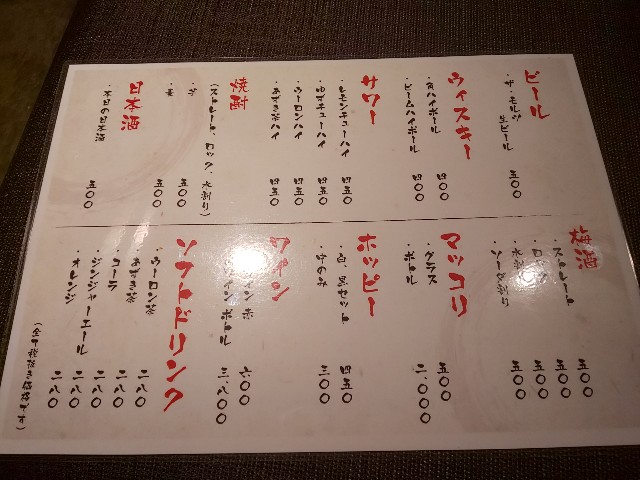 ビール
・ザ・モルツ
生ビール 五〇〇
ウィスキー
・角ハイボール 四〇〇
・ビームハイボール 四〇〇
サワー
・レモンチューハイ 四五〇
・ゆずチューハイ 四五〇
・ウーロンハイ 四五〇
・あずき茶ハイ 四五〇
焼酎
(ストレート、ロック、水割り)
・芋 五〇〇
・麦 五〇〇
日本酒
・本日の日本酒 五〇〇
梅酒
・ストレート 五〇〇
・ロック 五〇〇
・水割り 五〇〇
・ソーダ割り 五〇〇
マッコリ
・グラス 五〇〇
・ボトル 二、〇〇〇
ホッピー
・白、黒セット 四五〇
・中のみ 三〇〇
ワイン
イン 赤 六〇〇
イン ボトル 三、八〇〇
ソフトドリンク
・ウーロン茶 二八〇
・あずき茶 二八〇
・コーラ 二八〇
・ジンジャーエール 二八〇
・オレンジ 二八〇
(全て税抜き価格です)